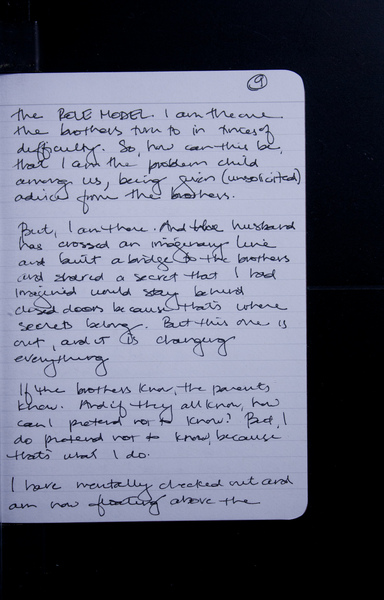 9
the ROLE MODEL. I am the one
the brothers turn to in times of
difficulty. So, how can this be,
that I am the problem child
among us, being given (unsolicited)
advice from the brothers.
But, I am there. And husband
has crossed an imaginary line
and built a bridge to the brothers
and shared a secret that I had
imagined would stay behind
closed doors because that's where
secrets belong. But this one is
out, and it is changing
everything
If the brothers know, the parents
know. And if they all know, how
can I pretend not to know? But, I
do pretend not to know, because
that's what I do.
I have mentally checked out and
am now floating above the